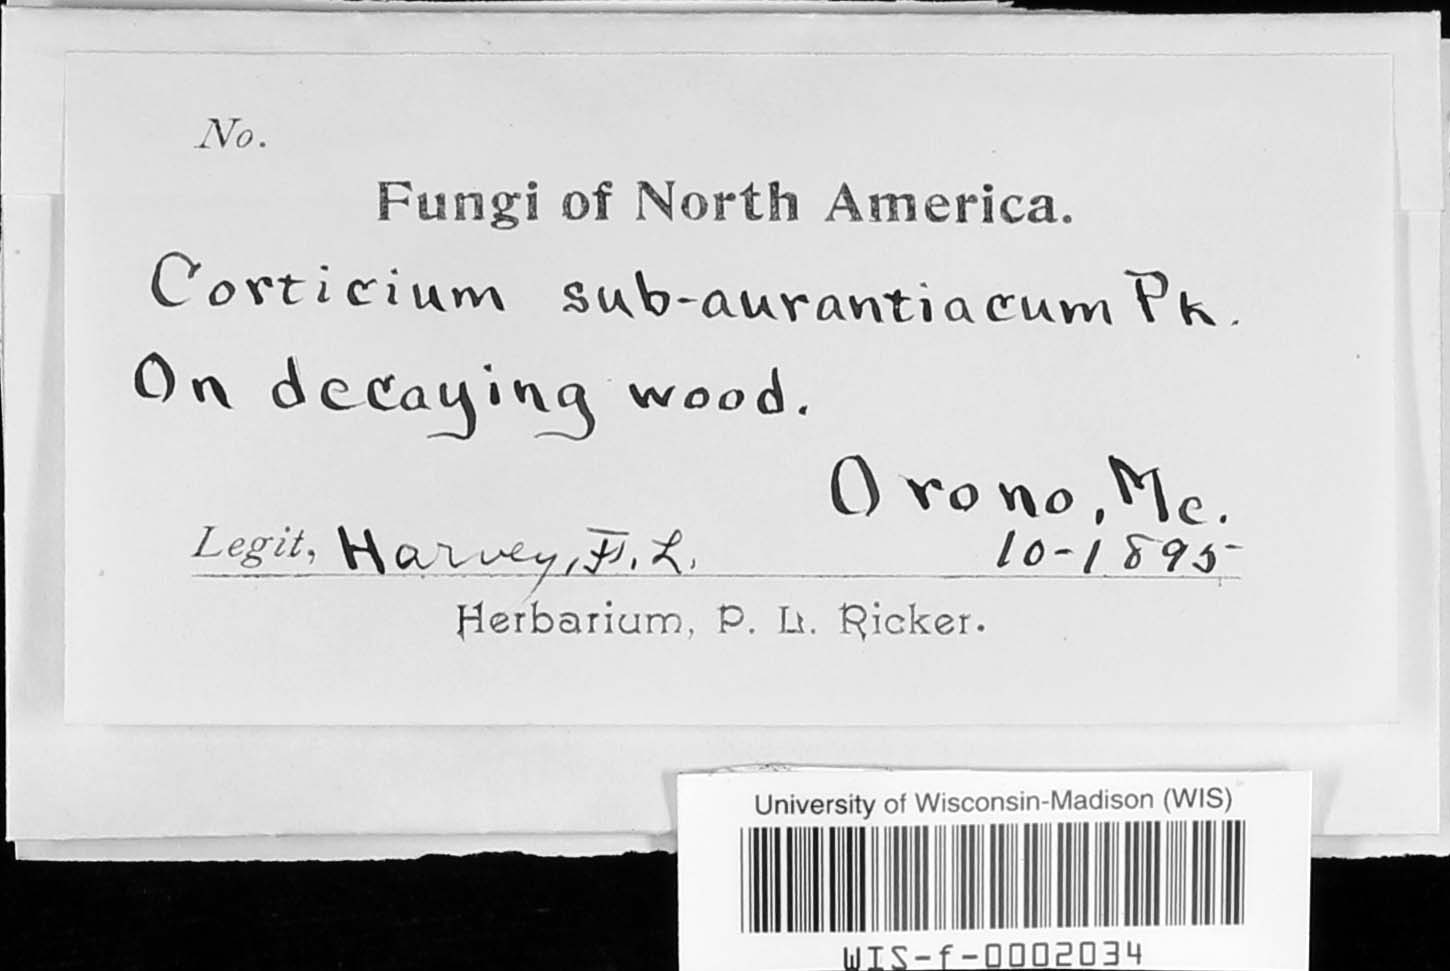 No.
Fungi of North America.
Corticium sub-aurantiacum Pk.
On decaying wood.
Orono, Me.
Legit, Harvey, F. L. 10-1895
Herbarium, P. L. Ricker.
University of Wisconsin-Madison (WIS)
WIS-f-0002034